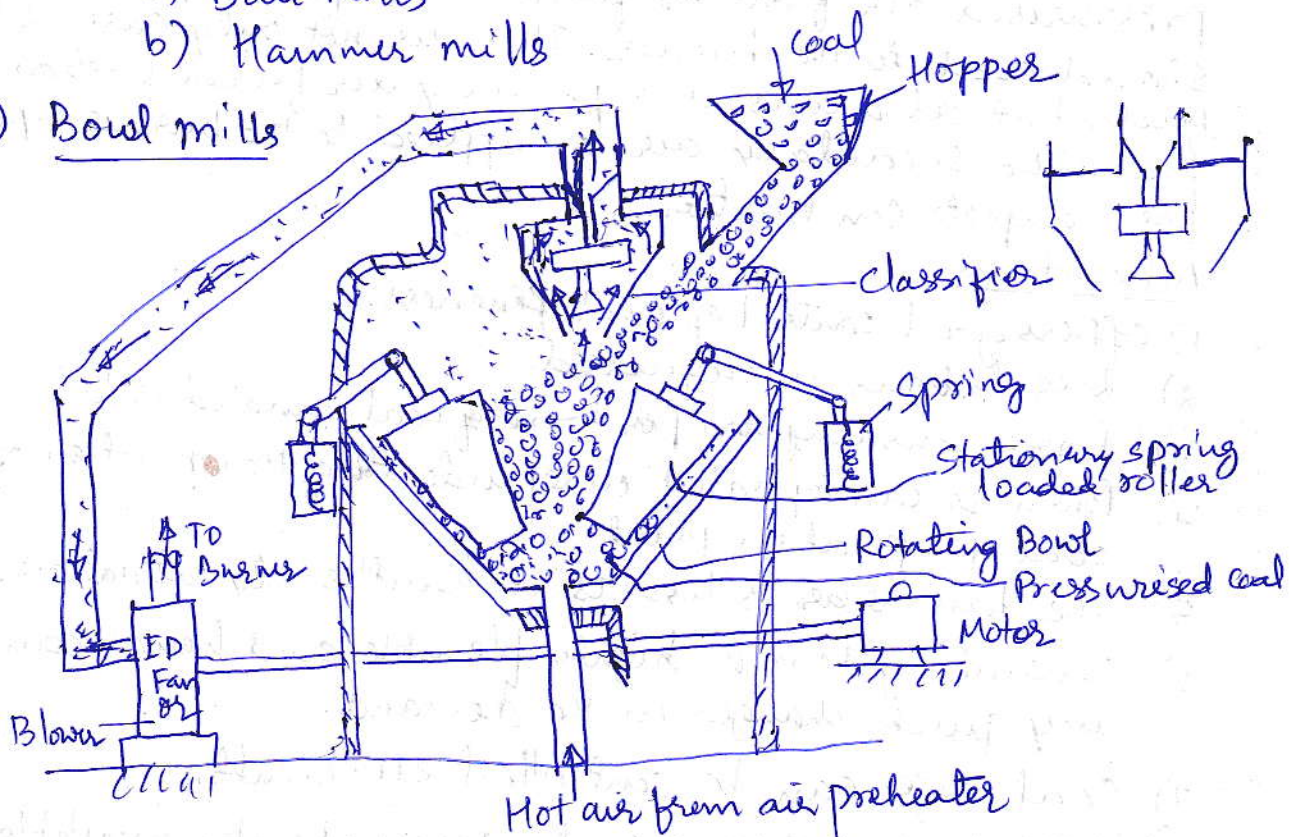 b) Hammer mills
) Bowl mills
coal
Hopper
classifier
Spring
Stationary spring
loaded roller
Rotating Bowl
Pressurised coal
Motor
TO
Burner
Fan
or
Blower
Hot air from air preheater